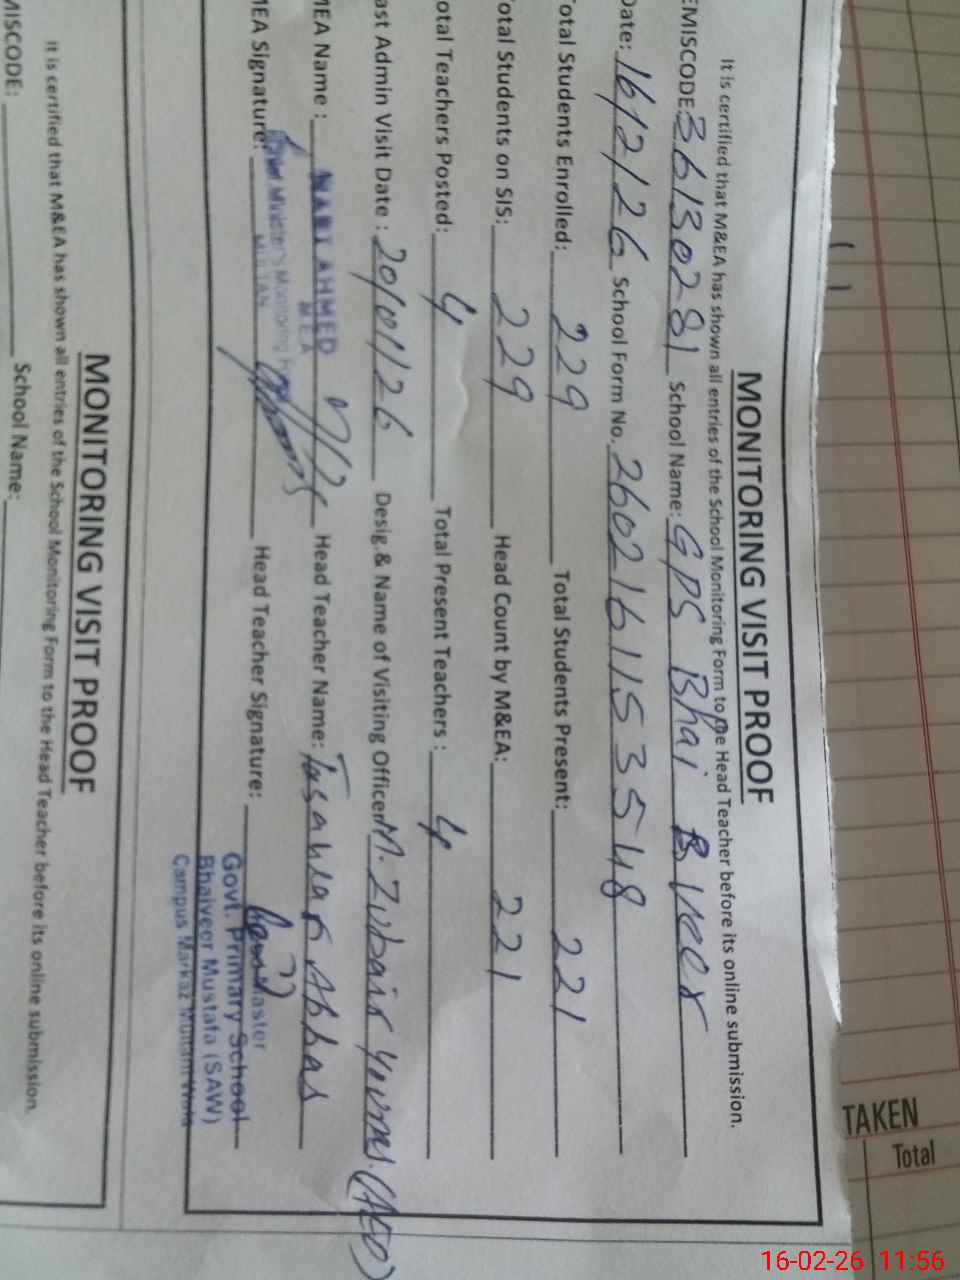 MONITORING VISIT PROOF
It is certified that M&EA has shown all entries of the School Monitoring Form to the Head Teacher before its online submission.
EMISCODE: 36130281 School Name: GPS Bhai Veer
Date: 16/2/26 School Form No. 2602161153548
Total Students Enrolled: 229 Total Students Present: 221
Total Students on SIS: 229 Head Count by M&EA: 221
Total Teachers Posted: 4 Total Present Teachers: 4
ast Admin Visit Date: 20/01/26 Desig.& Name of Visiting Officer M. Zubair Younes. (AEO)
MEA Name: AHMED Head Teacher Name: Tasawar Abbas
MEA
MEA Signature: Head Teacher Signature:
Chief Minister's Monitoring
MULTAN
Master
Govt. Primary School
Bhaiveer Mustafa (SAW)
Campus Markaz Multani Wala
MONITORING VISIT PROOF
It is certified that M&EA has shown all entries of the School Monitoring Form to the Head Teacher before its online submission.
MISCODE: School Name:
TAKEN
Total
16-02-26 11:56